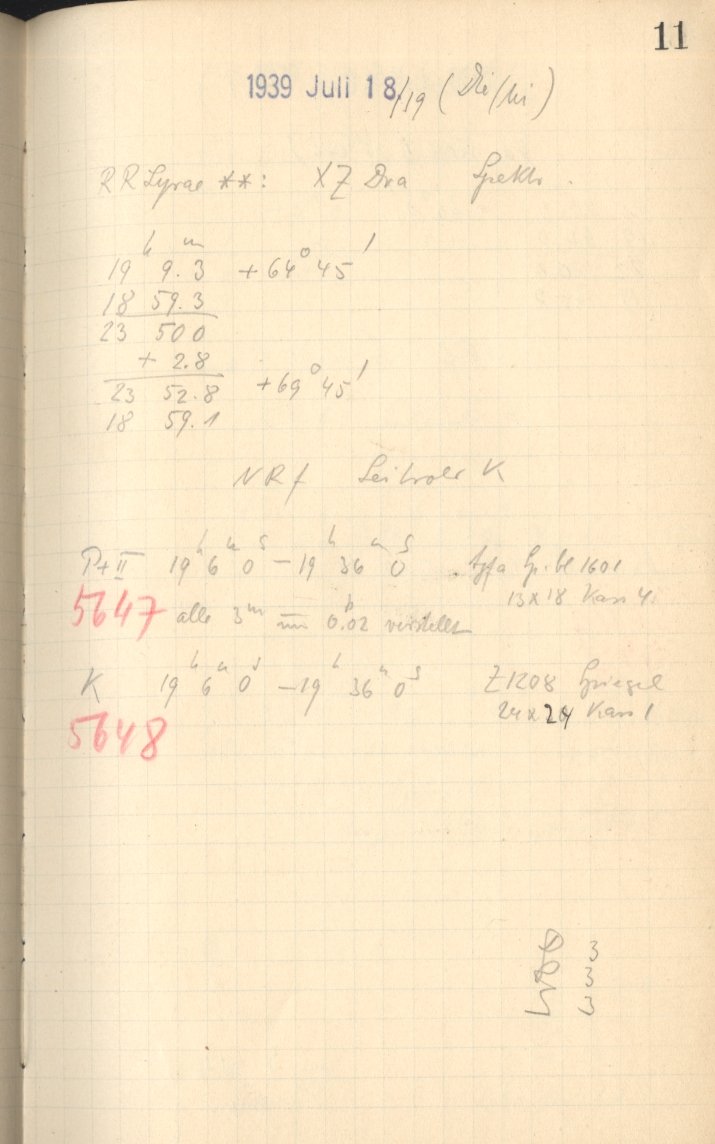 11
1939 Juli 18./19 (Die/Mi)
RR Lyrae **: XZ Dra Spektr.
19 h 9. m 3 +64° 45'
18 59.3
23 50 0
+ 2.8
23 52.8 +69° 45'
18 59.1
NRf Leitrohr K
P+II 19 h 6 m 0 s – 19 h 36 m 0 s Agfa 1601
13x18 Kass 4.
5647 alle 3 m um 0.02 verstellt
K 19 h 6 m 0 s – 19 h 36 m 0 s Z1208 Spiegel
24x24 Kass 1
5648
3
3
3